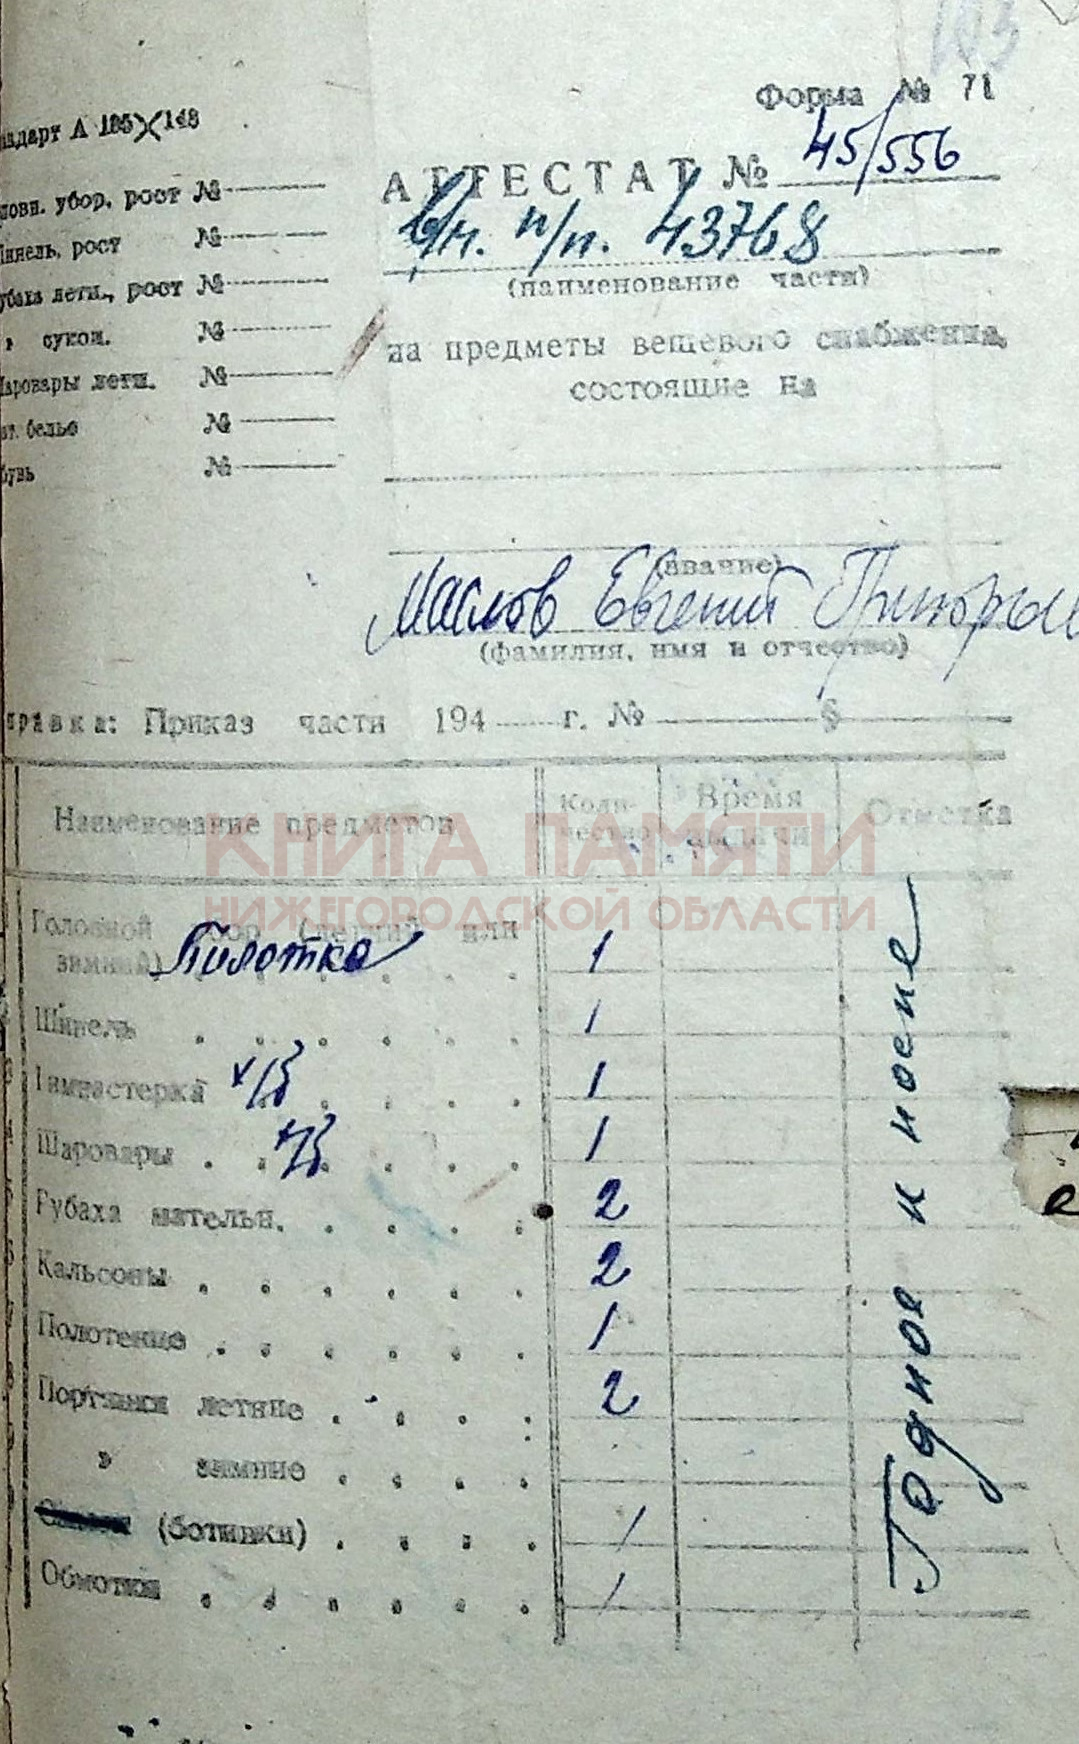 193
Форма № 71
ндарт А 105 Х 148
АТТЕСТАТ № 45/556
ловн. убор, рост №
в/ч. п/п. 43768
инель, рост №
(наименование части)
убаха летн., рост №
» сукон. №
на предметы вещевого снабжения,
аровары летн. №
состоящие на
ат. белье №
бувь №
(звание)
Маслов Евгений Григорьев
(фамилия, имя и отчество)
правка: Приказ части 194 г. № §
Наименование предметов Коли-чество Время выдачи Отметка
КНИГА ПАМЯТИ
НИЖЕГОРОДСКОЙ ОБЛАСТИ
Головной убор (летний или
зимний) Пилотка 1
Шинель 1
Гимнастерка х/б 1
Шаровары х/б 1
Рубаха нательн. 2
Кальсоны 2
Полотенце 1
Портянки летние 2
» зимние
(ботинки) 1
Обмотки 1
Годное к носке